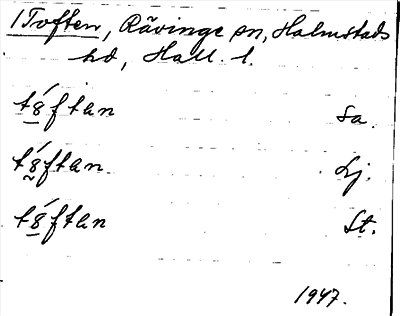 1 Toften, Rävinge sn, Halmstads
hd, Hall. l.
tȣ́ftan Sa.
tȣ́ftan Lj.
tȣ́ftan St.
1947.